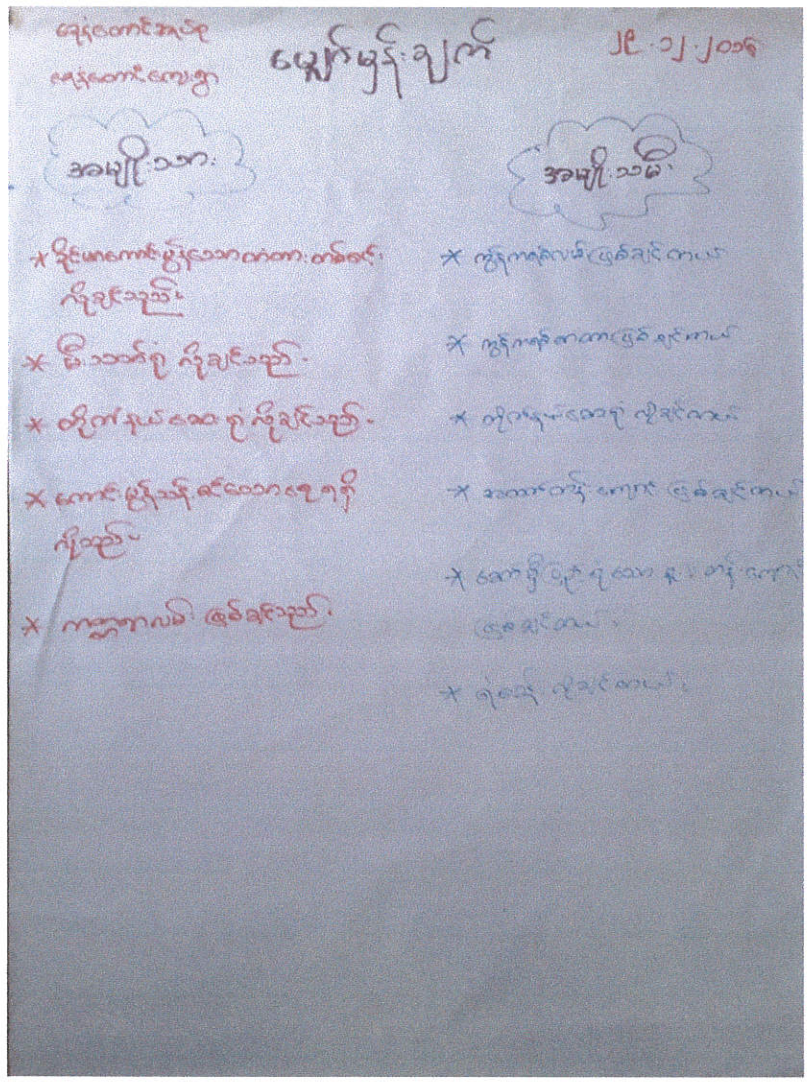 ရေနံတောင်အုပ်စု
ရေနံတောင်ကျေးရွာ
မျှော်မှန်းချက်
၂၉.၁၂.၂၀၁၆
အမျိုးသား
* ခိုင်မာကောင်းမွန်သောတံတားတစ်စင်း
လိုချင်သည်။
* မီးသတ်ရုံ လိုချင်သည်။
* တိုက်နယ်ဆေးရုံလိုချင်သည်။
* ကောင်းမွန်သန့်ရှင်းသောရေရရှိ
လိုသည်။
* ကတ္တရာလမ်း ဖြစ်ချင်သည်။
အမျိုးသမီး
* ကွန်ကရစ်လမ်းဖြစ်ချင်တယ်
* ကွန်ကရစ်တံတားဖြစ်ချင်တယ်
* တိုက်နယ်ဆေးရုံ လိုချင်တယ်
* အထက်တန်းကျောင်း ဖြစ်ချင်တယ်
* ဖြစ်ချင်တယ်။
* လိုချင်တယ်။